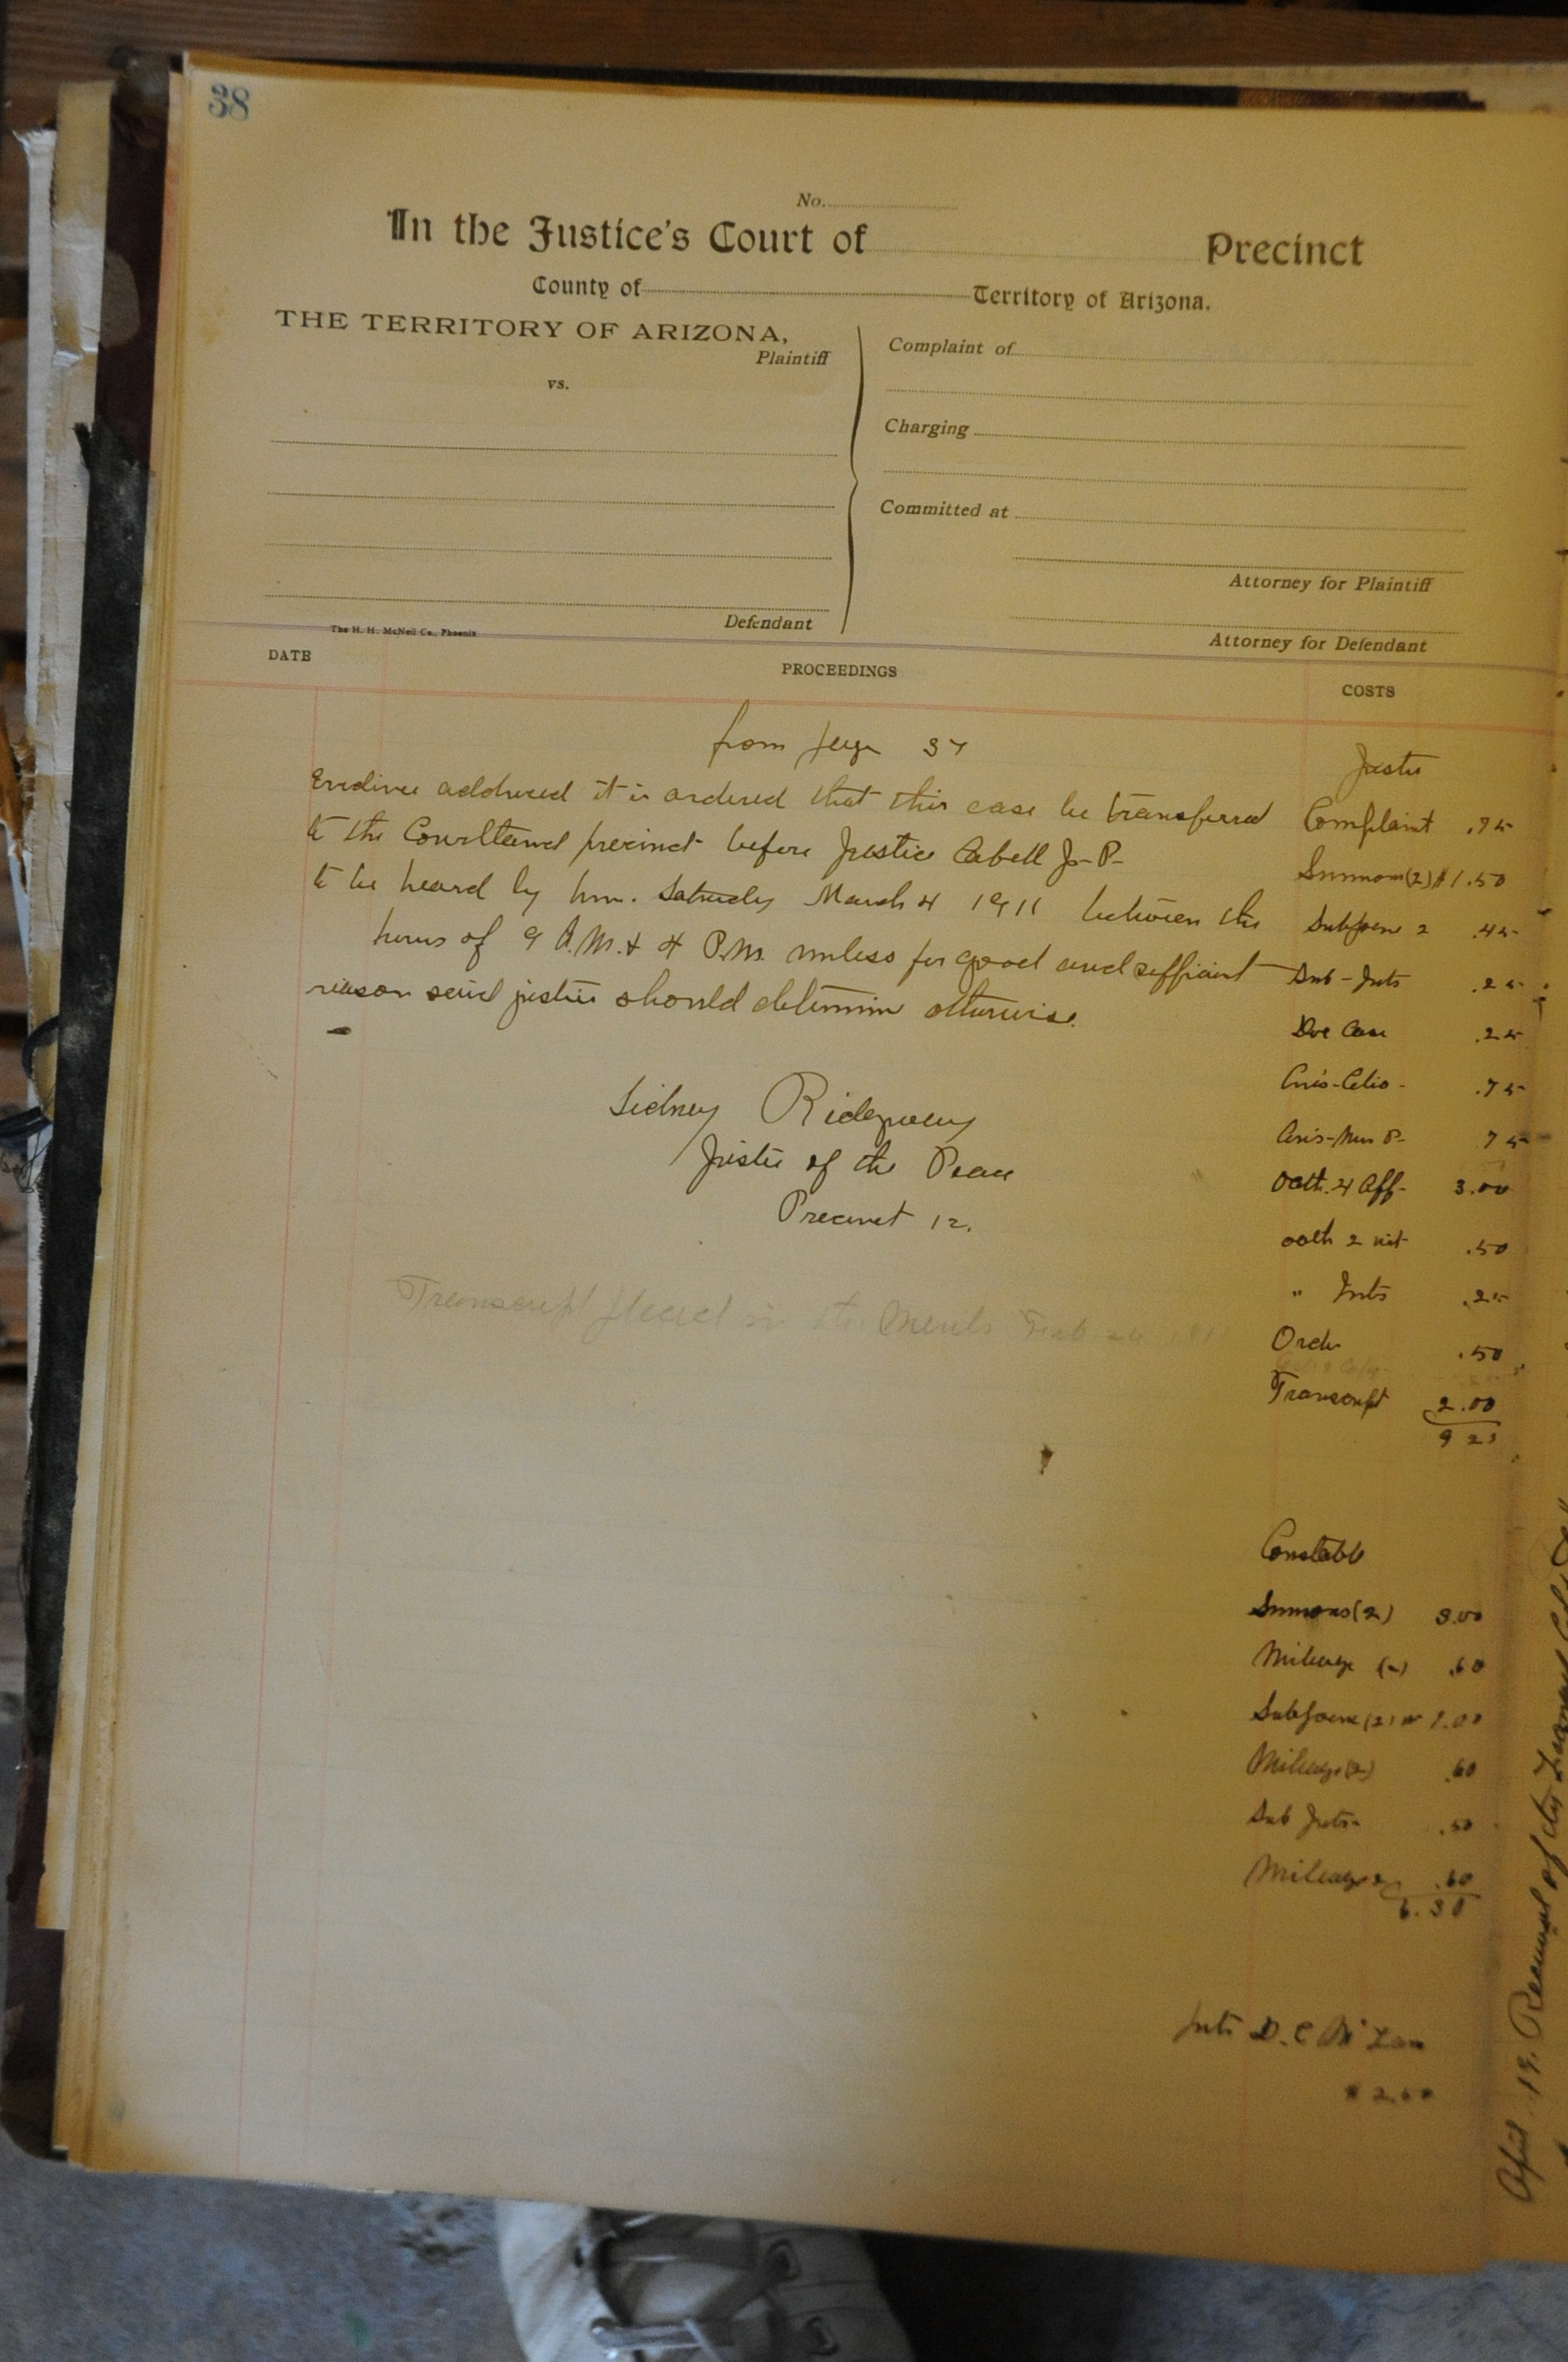 38
No.
In the Justice's Court of Precinct
County of Territory of Arizona.
THE TERRITORY OF ARIZONA,
Plaintiff
vs.
Defendant
Complaint of
Charging
Committed at
Attorney for Plaintiff
Attorney for Defendant
The H. H. McNeil Co., Phoenix
DATE PROCEEDINGS COSTS
from page 37
Evidince adduced it is ordered that this case be transferred
to the Courtland precinct before Justice Cabell J-P-
to be heard by him. Saturday March 4 1911 between the
hours of 9 A.M. & 4 P.M. unless for good and suffiaint
reason said justice should determine otherwise.
Sidney Ridgway
Justice of the Peace
Precinct 12.
Transcript in the Feb 1911
Justice
Complaint .75
Summons (2) $1.50
Subpoena 2 .45
Sub- .25
.25
.75
75
Oath. 4 Aff- 3.00
oath 2 wit .50
" .25
Order .50
Transcript 2.00
9 25
Constable
Summons (2) 3.00
Mileage .60
Subpoena (2) 1.00
Mileage (2) .60
Sub .50
Mileage .60
6.30
D. C.
$ 2.00
April 19. of